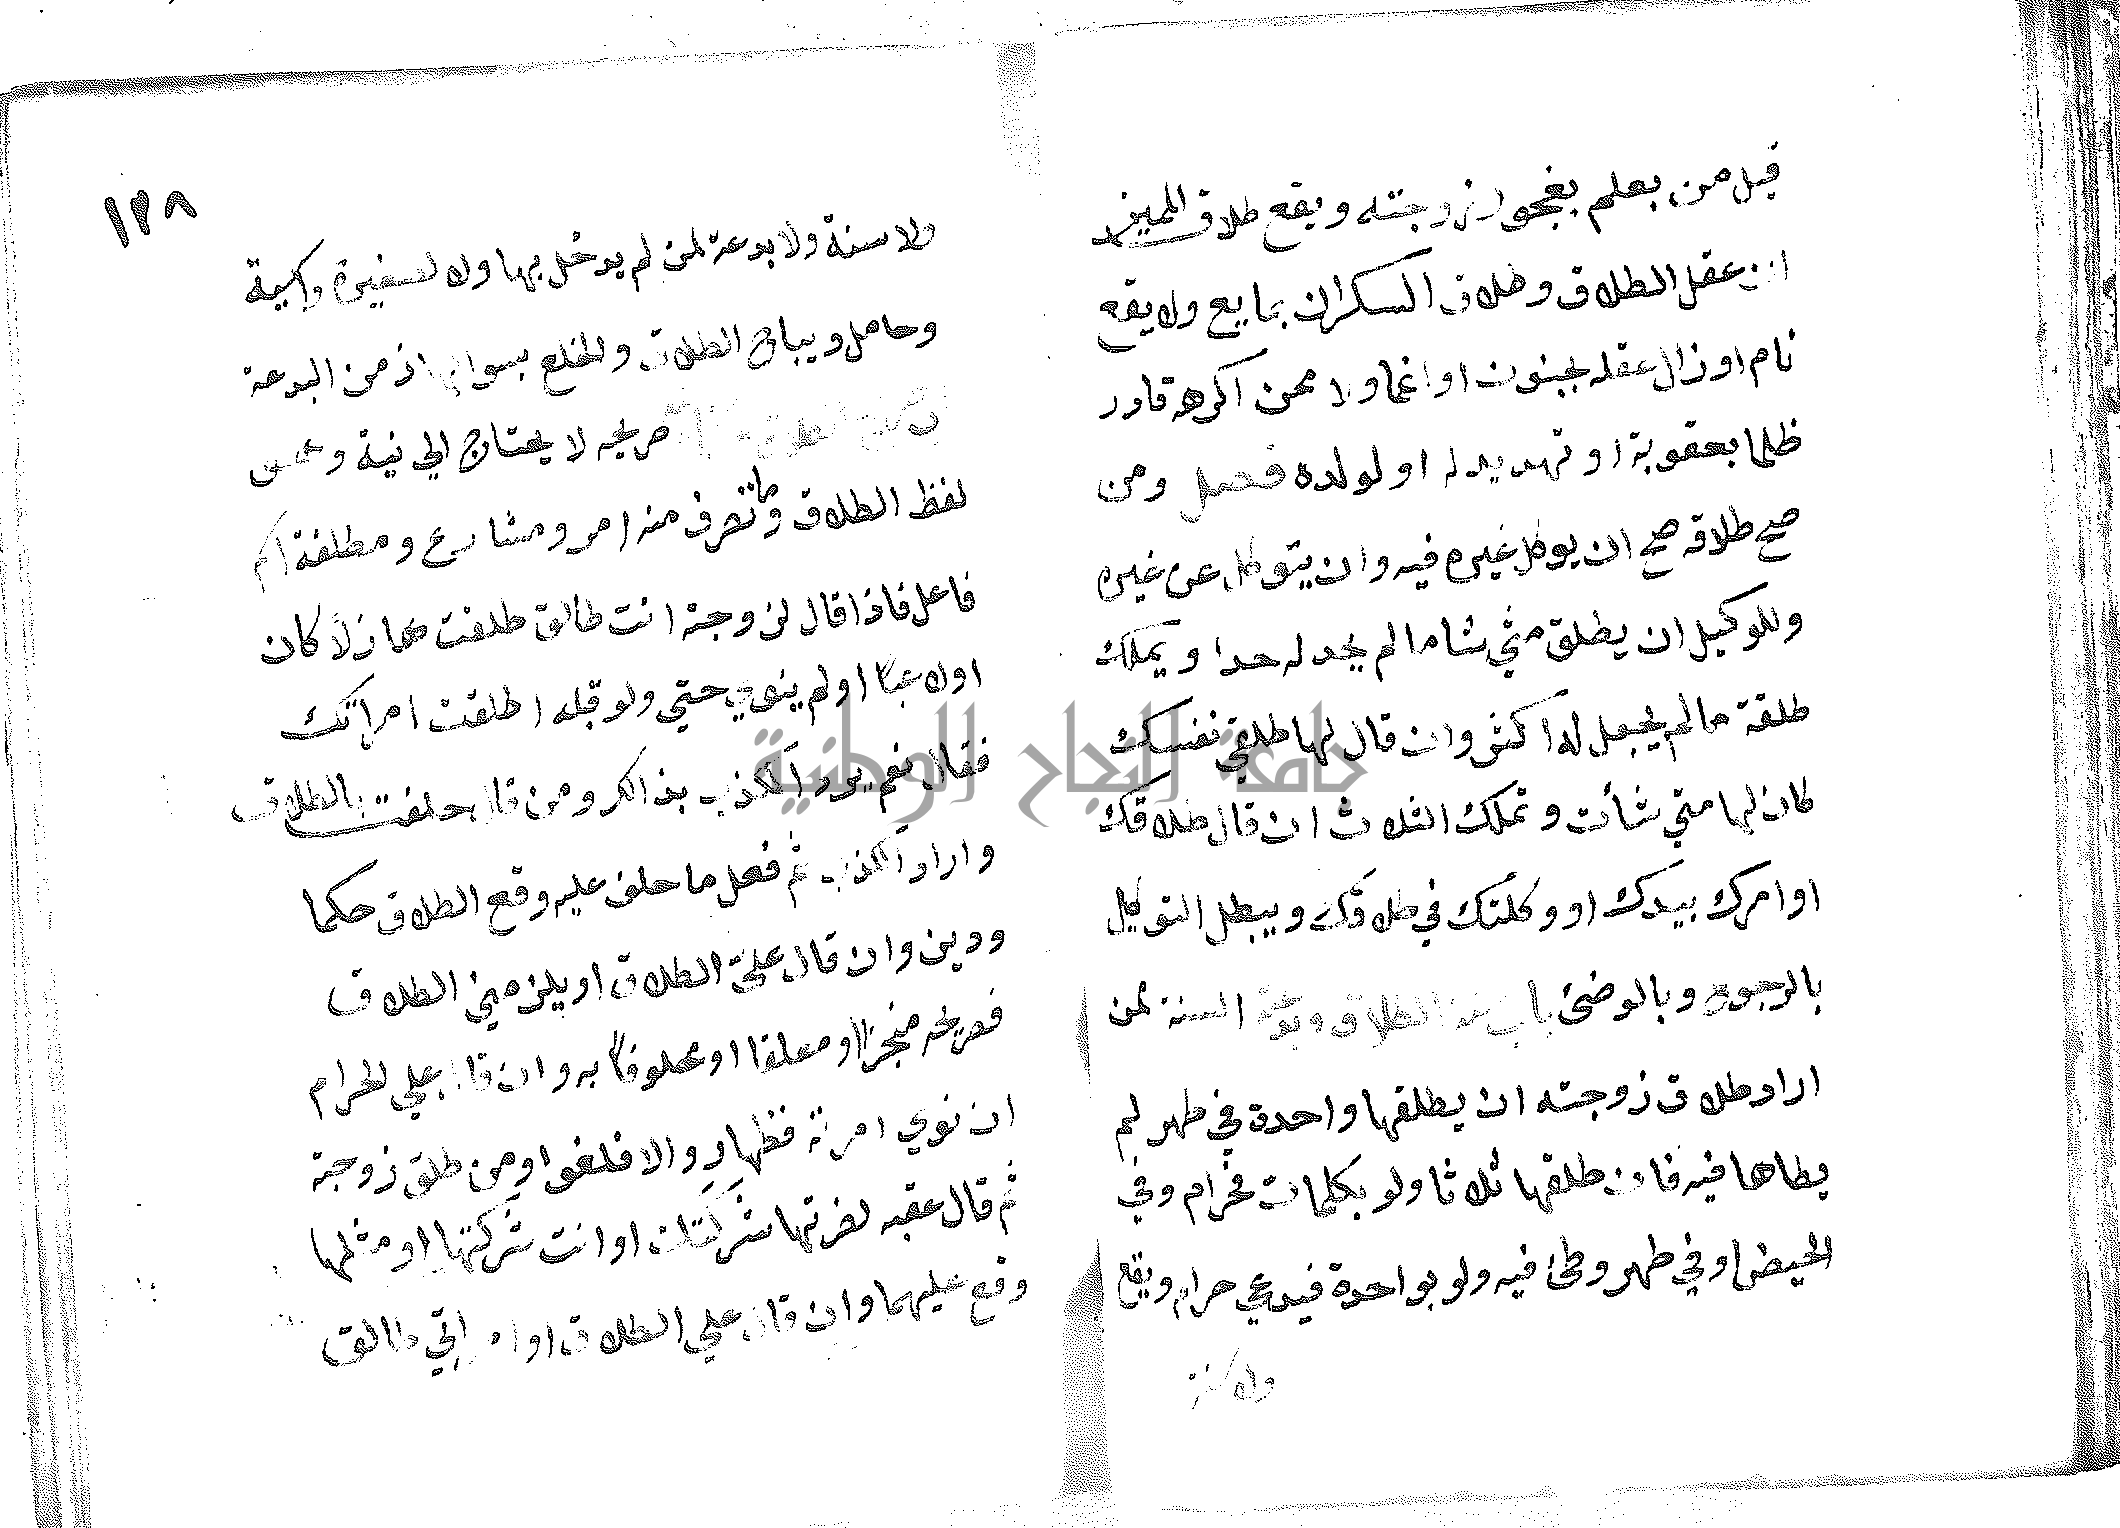 قبل من بعلم بفجور زوجته ويقع طلاق المميز
ان عقل الطلاق وطلاق السكران بمايع ولا يقع
نام او زال عقله بجنون او اغما ولا ممن اكرهه قادر
ظلما بعقوبة او تهديد له او لولده ففعل ومن
صح طلاقه صح ان يوكل غيره فيه وان يتوكل عن غيره
وللوكيل ان يطلق متي شا ما لم يحد له حدا ويملك
طلقة ما لم يجعل له اكثر وان قال لها طلقي نفسك
كان لها متي شأت وتملك الثلاث ان قال طلاقك
او امرك بيدك او وكلتك في طلاقك ويبطل التوكيل
بالرجوع وبالوضئ باب سنة الطلاق وبدعته السنة لمن
اراد طلاق زوجته ان يطلقها واحدة في طهر لم
يطاها فيه فان طلقها ثلاثا ولو بكلمات فحرام وفي
الحيض او في طهر وطئ فيه ولو بواحدة فبدعي حرام ويقع
ولا سنة
١٢٨
ولا سنة ولا بدعة لمن لم يدخل بها ولا لصغيرة وايسة
وحامل ويباح الطلاق والخلع بسوالها اذ من البدعة
صريحه لا يحتاج الي نية وهو
لفظ الطلاق وما تصرف منه امر ومضارع ومطلقة اسم
فاعل فاذا قال لزوجة انت طالق طلقت هازلا كان
اولاعبا او لم ينوي حتي ولو قيل له اطلقت امراتك
فقال نعم يريد الكذب بذالك ومن قال حلفت بالطلاق
واراد الكذب ثم فعل ما حلف عليه وقع الطلاق حكما
ودين وان قال علي الطلاق او يلزمني الطلاق
فصريحه منجزا او معلقا او محلوفا به وان قال علي الحرام
ان نوي امرته فظهار والا فلغوا ومن طلق زوجة
ثم قال عقبه لضرتها شركتك او انت شركتها او مثلها
وقع عليهما وان قال علي الطلاق او امراتي طالق
جامعة النجاح الوطنية